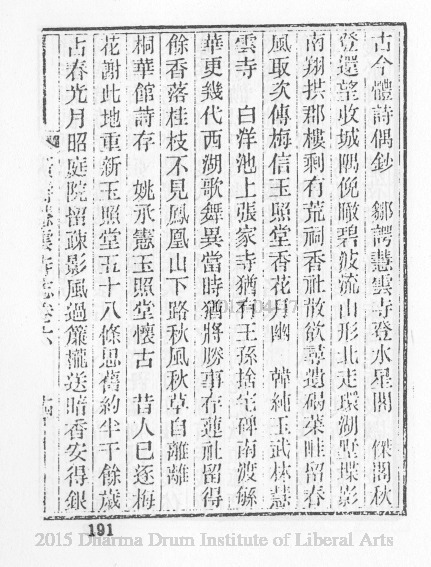 古今體詩偶鈔　鄒諤慧雲寺登水星閣　傑閣秋
登還望收城隅俛瞰碧波流山形北走環湖墅堞影
南翔拱郡樓剩有荒祠香社散欲尋遺碣菜畦留春
風取次傳梅信玉照堂香花月幽　韓純玉武林慧
雲寺　白洋池上張家寺猶有王孫捨宅碑南渡繁
華更幾代西湖歌舞異當時猶將勝事存蓮社留得
餘香落桂枝不見鳳凰山下路秋風秋草自離離
桐華館詩存　姚承憲玉照堂懷古　昔人已逐梅
花謝此地重新玉照堂五十八條思舊約半千餘歲
占春光月昭庭院留疎影風過簾櫳送暗香安得銀
慧雲寺志卷六
191
2015 Dharma Drum Institute of Liberal Arts